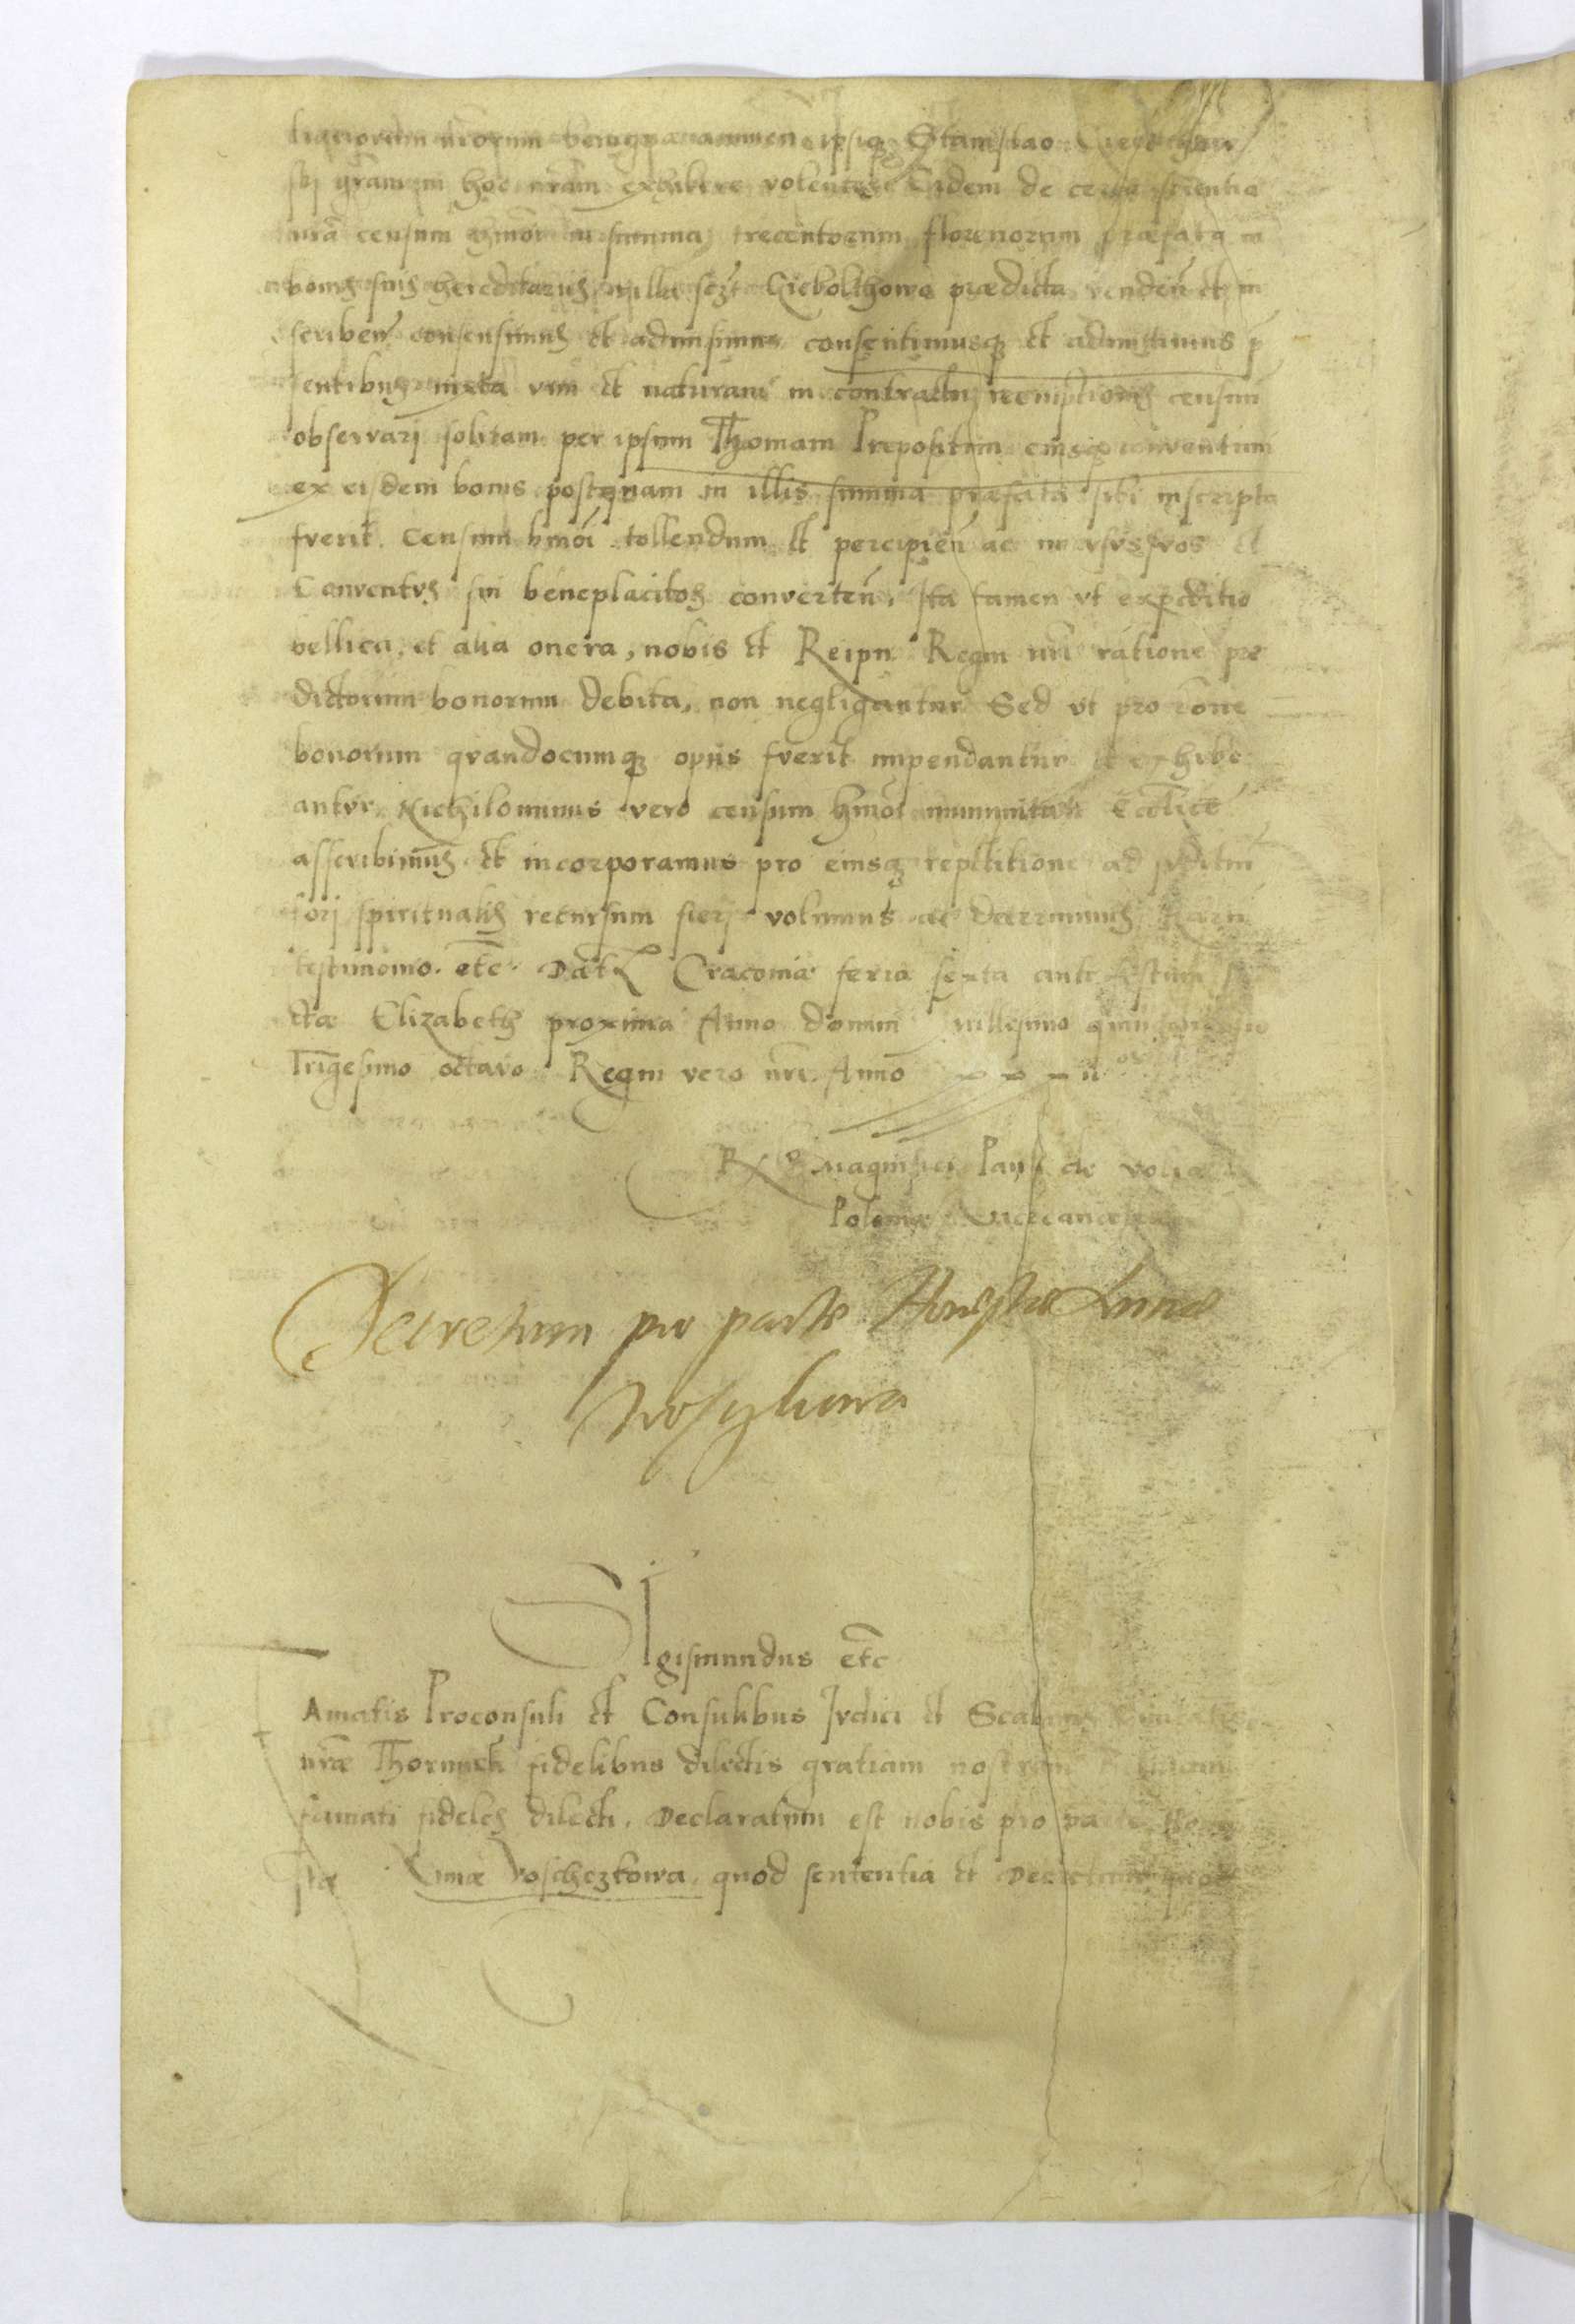 nrorum benigna ipsiq Stanislao
sbj gram in hoc nram exhibere volentes Eidem de certa scientia
nrã censum hmõi in summa trecentorum florenorum præfata in
bonis suis hereditariis villa scz Ciebolthowa prædicta venden ct in
scriben consensimus ct admisimus consentimusq ct admittimus p
entibus iuxta vim ct naturam in contractu reemptionis censuu
observari solitam per ipsum Thomam Prepositum eiusq conventum
ex eisdem bonis postquam in illis summa præfata sibi inscripta
fverit Censum hmõi tollendum ct percipien ac in vsvs svos ct
Conventvs sui beneplacitos converten, Ita tamen vt expeditio
bellica, et alia onera, nobis ct Reipu Regni nri ratione præ
dictorum bonorum Debita, non negligantur Sed vt pro rone
bonorum qvandocumq opus fverit impendantur ct exhibe
antvr Nichilominus vero censum hmõi immunitati Ecclice
asscribimus ct incorporamus pro eiusq repetitione ad
forj spiritualis recursum fierj volumus ac decernimus Harũ
testimonio. etc. Dat Cracoviæ feria sexta ante festum s
ctæ Elizabeth proxima Anno domini millesimo quingentesimo
Trigesimo octavo Regni vero nri Anno xxxii
Rx magnifici Pauli de volia
Poloniæ Vicecancel
Decretum pro parte Honestæ Annæ
Sigismundus etc
Amatis Proconsuli ct Consulibus Jvdici ct Scabinis Civitatis
nræ Thorunen fidelibus dilectis gratiam nostram
famati fideles dilecti. Declaratum est nobis pro parte Hone
stæ Annæ Voschezkowa, quod sententia ct Decretum